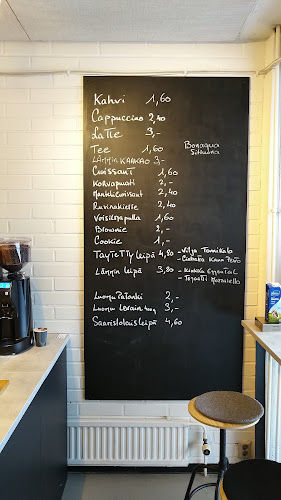 Kahvi 1,60
Cappuccino 2,40
Latte 3,-
Tee 1,60
Bonaqua
Sitruuna
Lämmin kaakao 3,-
Croissant 1,60
Korvapuusti 2,-
Mantelicroissant 2,40
Rusinakierre 2,40
Voisilmäpulla 1,60
Brownie 2,-
Cookie 1,-
Täytetty leipä 4,80 - Vilja Tonnikala
Ciabatta Kana Pesto
Lämmin leipä 3,80
- Tomaatti Mozzarella
Luomu Patonki 2,-
Luomu 3,-
Saaristolaisleipä 4,60